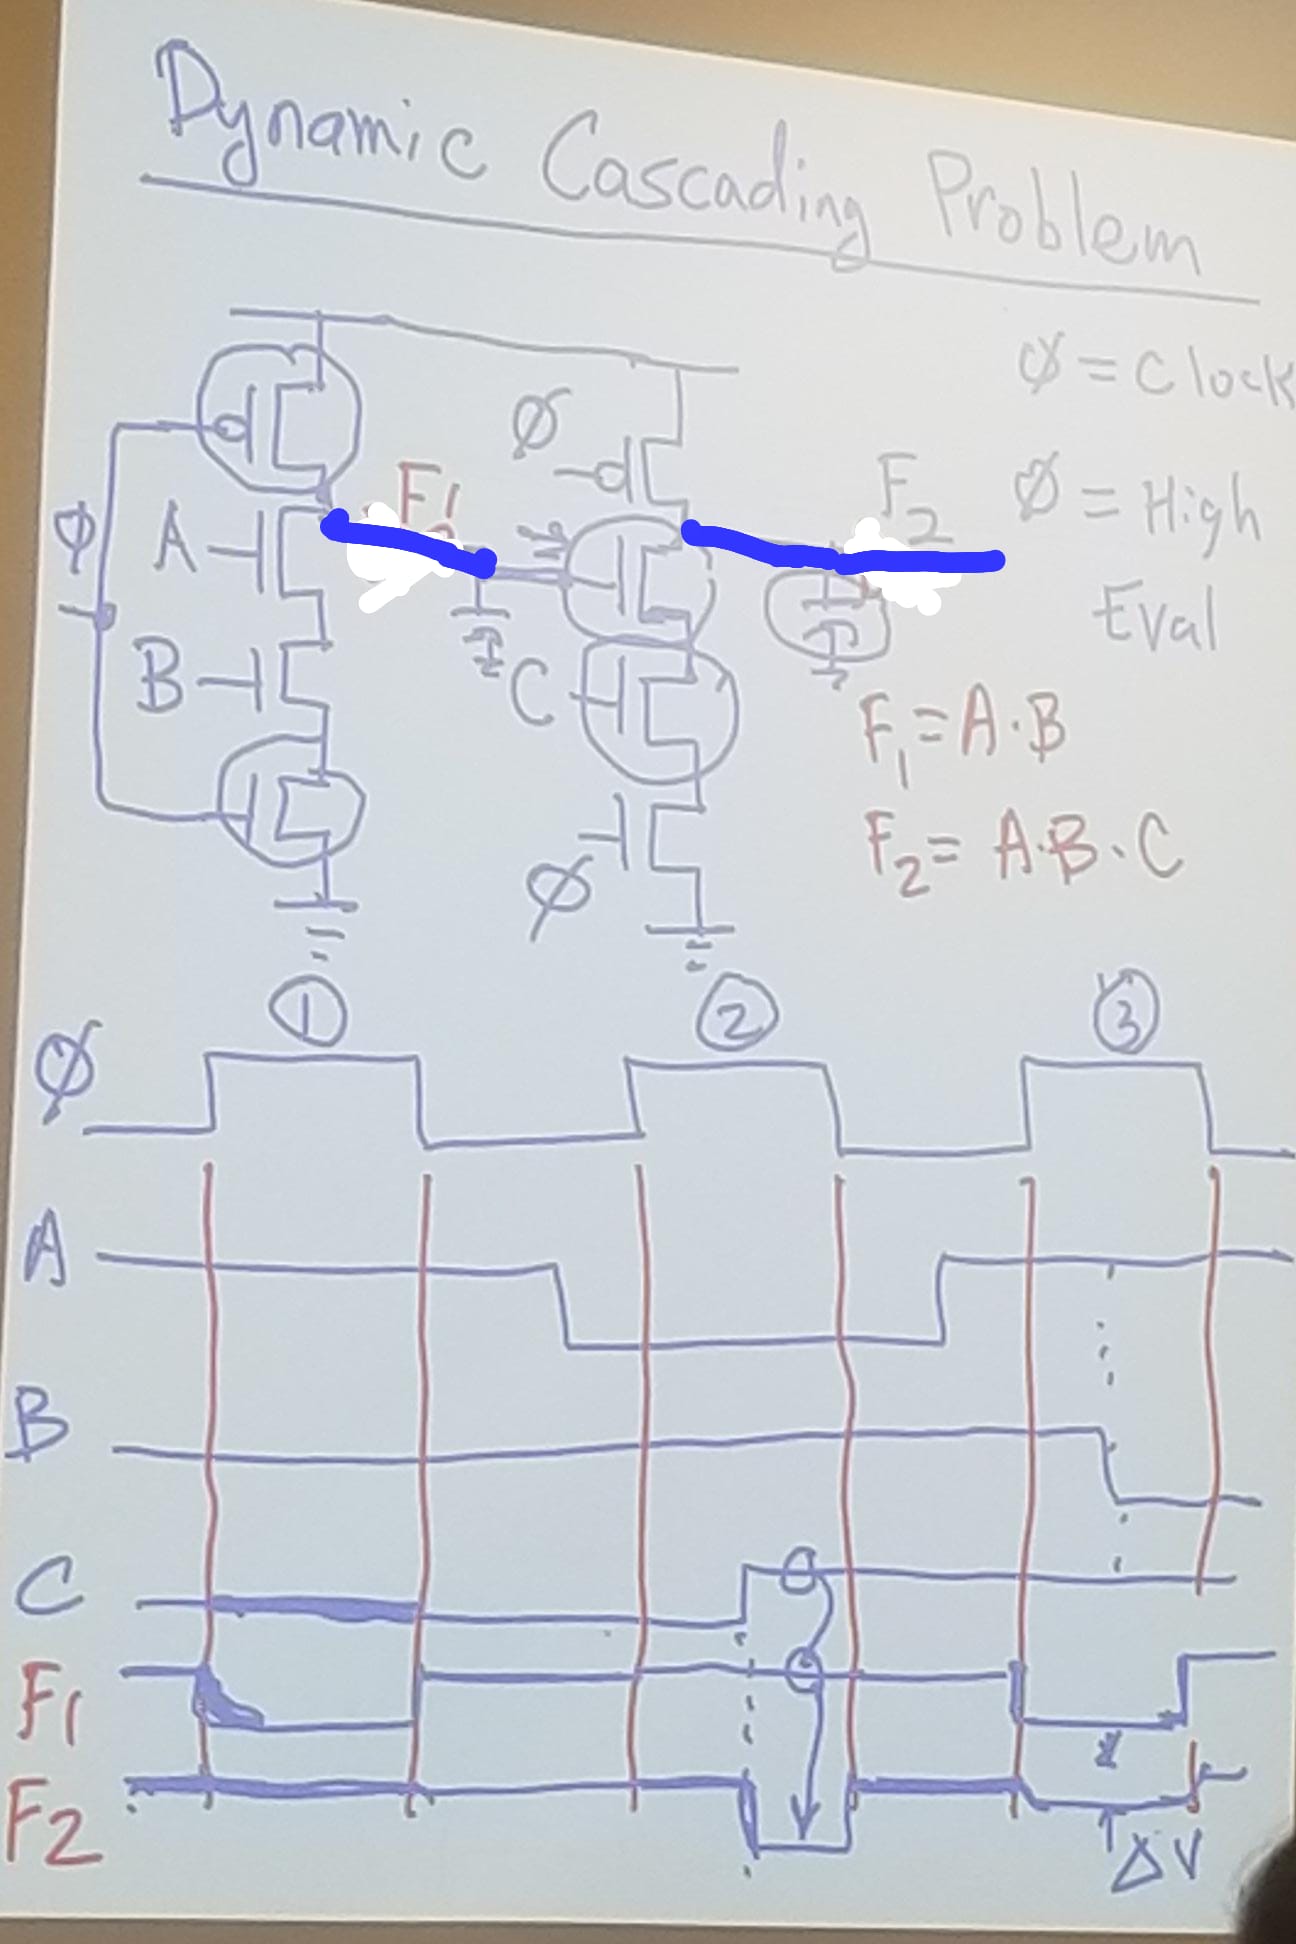 Dynamic Cascading Problem
Ø = Clock
Ø
F1
F2
Ø = High
Eval
Ø
A
B
C
F1 = A·B
F2 = A·B·C
Ø
1 2 3
Ø
A
B
C
F1
F2
ΔV